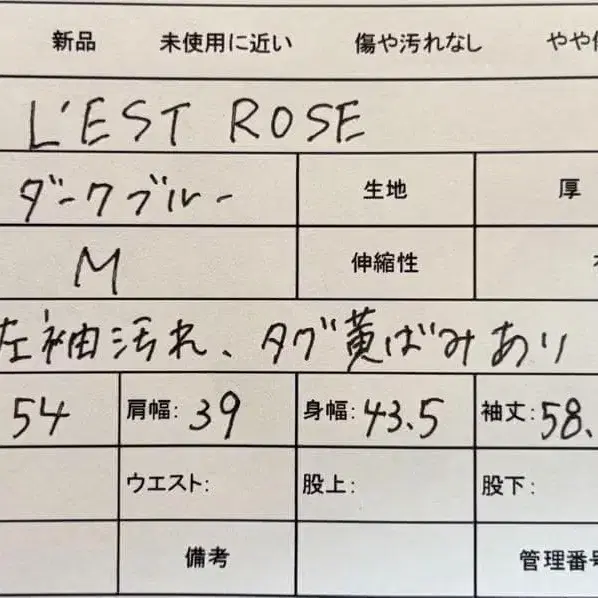 新品 未使用に近い 傷や汚れなし やや
L'EST ROSE
ダークブルー 生地 厚
M 伸縮性
左袖汚れ、タグ黄ばみあり
54 肩幅: 39 身幅: 43.5 袖丈: 58.
ウエスト: 股上: 股下:
備考 管理番号